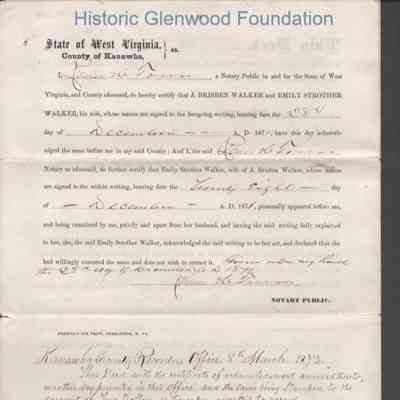 Historic Glenwood Foundation
State of West Virginia,
County of Kanawha, } ss.
I, a Notary Public in and for the State of West
Virginia, and County aforesaid, do hereby certify that J. BRISBEN WALKER and EMILY STROTHER
WALKER, his wife, whose names are signed to the foregoing writing, bearing date the 28th
day of December A. D. 1871, have this day acknowl-
edged the same before me in my said County; And I, the said
Notary as aforesaid, do further certify that Emily Strother Walker, wife of J. Brisben Walker, whose names
are signed to the within writing, bearing date the Twenty Eight day
of December A. D. 1871, personally appeared before me,
and being examined by me, privily and apart from her husband, and having the said writing fully explained
to her, she, the said Emily Strother Walker, acknowledged the said writing to be her act, and declared that she
had willingly executed the same and does not wish to retract it. Given under my hand
this 28th day of December A D 1871
NOTARY PUBLIC.
Kanawha County Recorders Office 8th March 1872
This Deed with the certificate of acknowledgment annexed thereto,
was this day presented in this Office and the same being Stamped to the
amount of